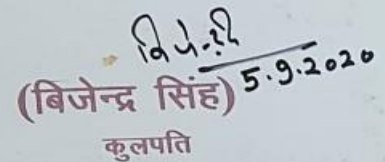 5.9.2020
(बिजेन्द्र सिंह)
कुलपति